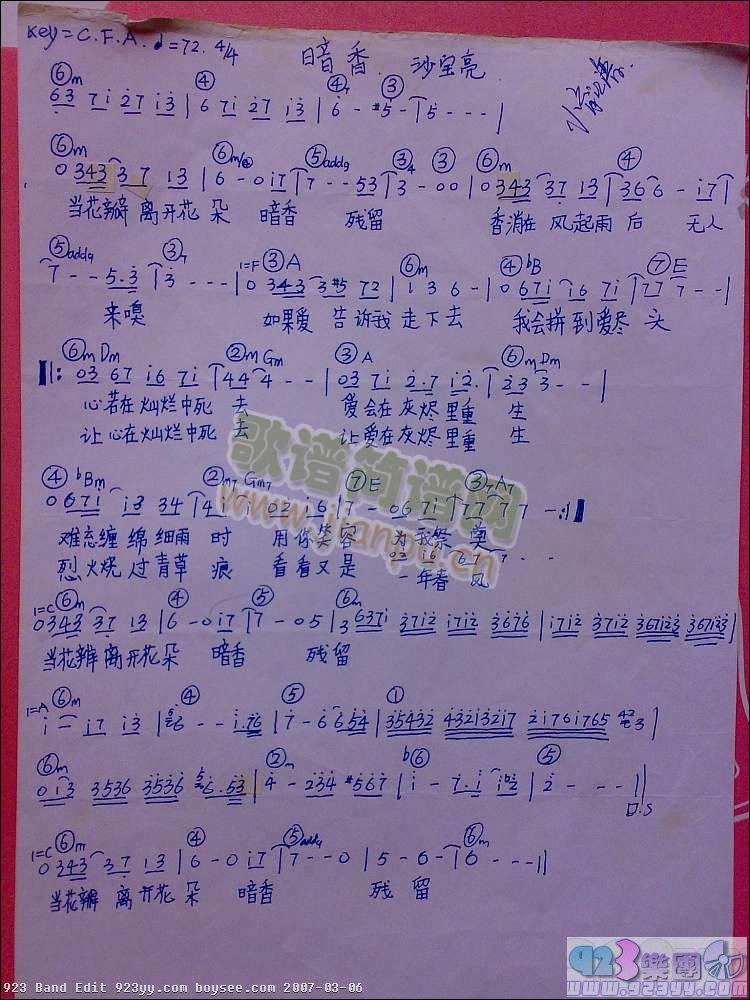 Key=C.F.A. ♩=72. 4/4
暗香 沙宝亮
⑥m ④ ④7 ③
63 7i 27 i3 | 6 7i 27 i3 | 6 - #5 - | 5 - - - |
⑥m ⑥m/④ ⑤add9 ③4 ③ ⑥m ④
0 343 37 13 | 6 - 0 i7 | 7 - - 53 | 3 - 00 | 0 343 37 13 | 36 6 - i7 |
当花瓣 离开花 朵 暗香 残留 香消在 风起雨 后 无人
⑤add9 ③7 1=F ③A ⑥m ④bB ⑦E
7 - - 5.3 | 3 - - - | 0 343 3#5 72 | 1 3 6 - | 0 67i i6 7i | 77 7 - - |
来嗅 如果爱 告诉我 走下去 我会拼 到爱尽 头
⑥m Dm ②m Gm ③ A ⑥m Dm
|: 03 67 i6 7i | 44 4 - - | 03 7i 2.7 i2. | 23 3 - - |
心若在灿烂中死 去 爱会在灰烬里重 生
让心在灿烂中死 去 让爱在灰烬里重 生
④ bBm ②m7 Gm7 ⑦E ③7 A7
0 67i i3 34 | 4i i 02 i6 | 7 - 06 7i | 77 77 - :|
难忘缠 绵细雨 时 用你笑 容 为我祭 奠
02 i6 67 7 - -
烈火烧 过青草 痕 看看又 是 一年春 风
1=C ⑥m ④ ⑤ ⑥m
0343 37 13 | 6 - 0i7 | 7 - 05 | 3 637i 37i2 i7i2 3676 | i7i2 37i2 367i23 367i23 |
当花瓣 离开花 朵 暗香 残留
1=A ⑥m ④ ⑤ ①
i - i7 i3 | 56 - - i.76 | 7 - 6 654 | 35432 43213217 2i76i765 42 3 |
⑥m ②m b⑥ ⑤
0i3 3536 3536 6.53 | 4 - 234 #567 | i - 7.i ib2 | 2 - - - ||
D.S
1=C ⑥m ④ ⑤add9 ⑥m
0 343 37 13 | 6 - 0 i7 | 7 - - 0 | 5 - 6 - | 6 - - - ||
当花瓣 离开花 朵 暗香 残 留
歌谱简谱网
www.jianpu.cn
923樂團
www.923yy.com
923 Band Edit 923yy.com boysee.com 2007-03-06